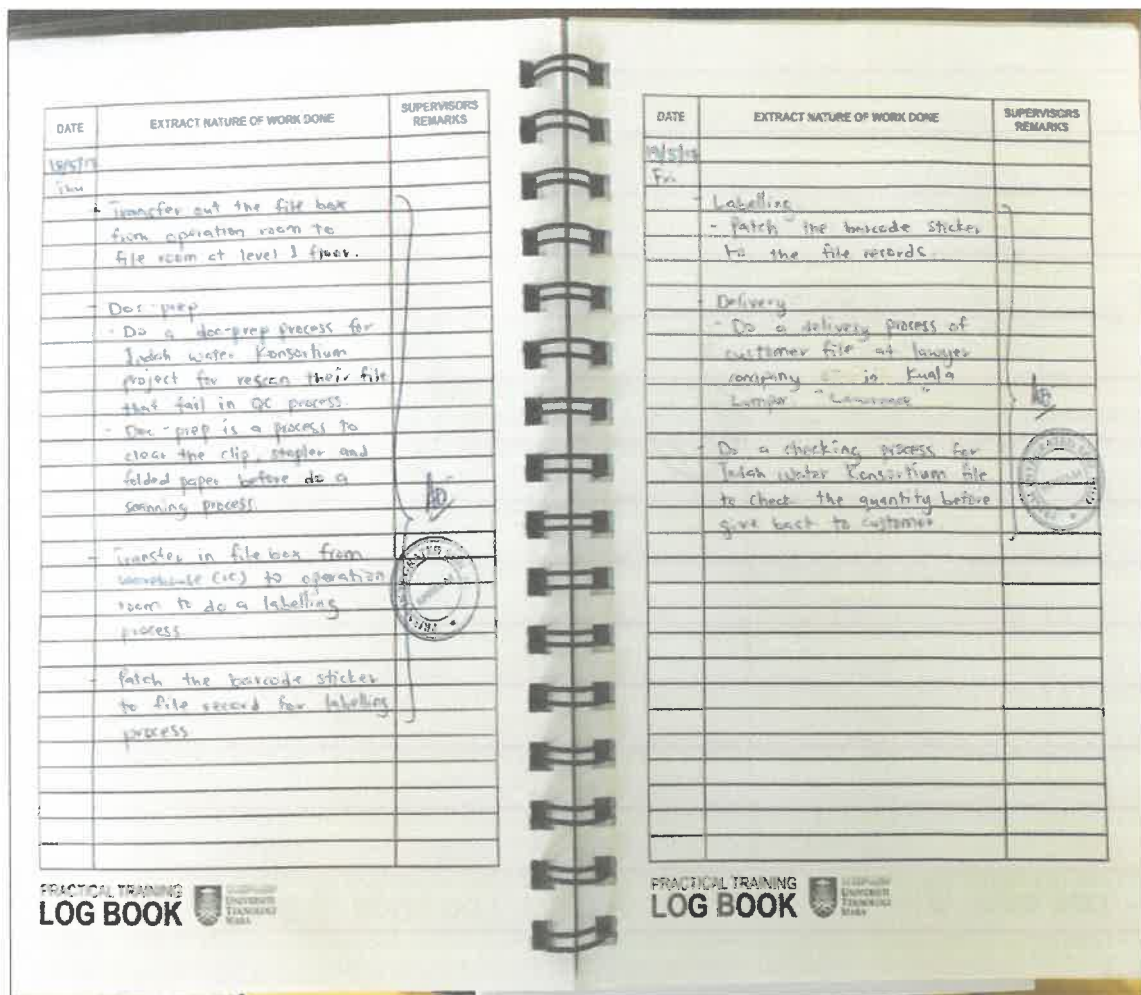 DATE
EXTRACT NATURE OF WORK DONE
SUPERVISORS
REMARKS
18/5/17
Thu
- Transfer out the file box
from operation room to
file room at level 1 floor.
- Doc-prep
- Do a doc-prep process for
Indah Water Konsortium
project for rescan their file
that fail in QC process.
- Doc-prep is a process to
clear the clip, stapler and
folded paper before do a
scanning process.
- Transfer in file box from
warehouse to operation
room to do a labelling
process
- Patch the barcode sticker
to file record for labelling
process
PRACTICAL TRAINING
LOG BOOK
UNIVERSITI
TEKNOLOGI
MARA
DATE
EXTRACT NATURE OF WORK DONE
SUPERVISORS
REMARKS
19/5/17
Fri
- Labelling
- Patch the barcode sticker
to the file records.
- Delivery
- Do a delivery process of
customer file at lawyer
company in Kuala
Lumpur. "Lawrance"
- Do a checking process for
Indah Water Konsortium file
to check the quantity before
give back to customer
PRACTICAL TRAINING
LOG BOOK
UNIVERSITI
TEKNOLOGI
MARA